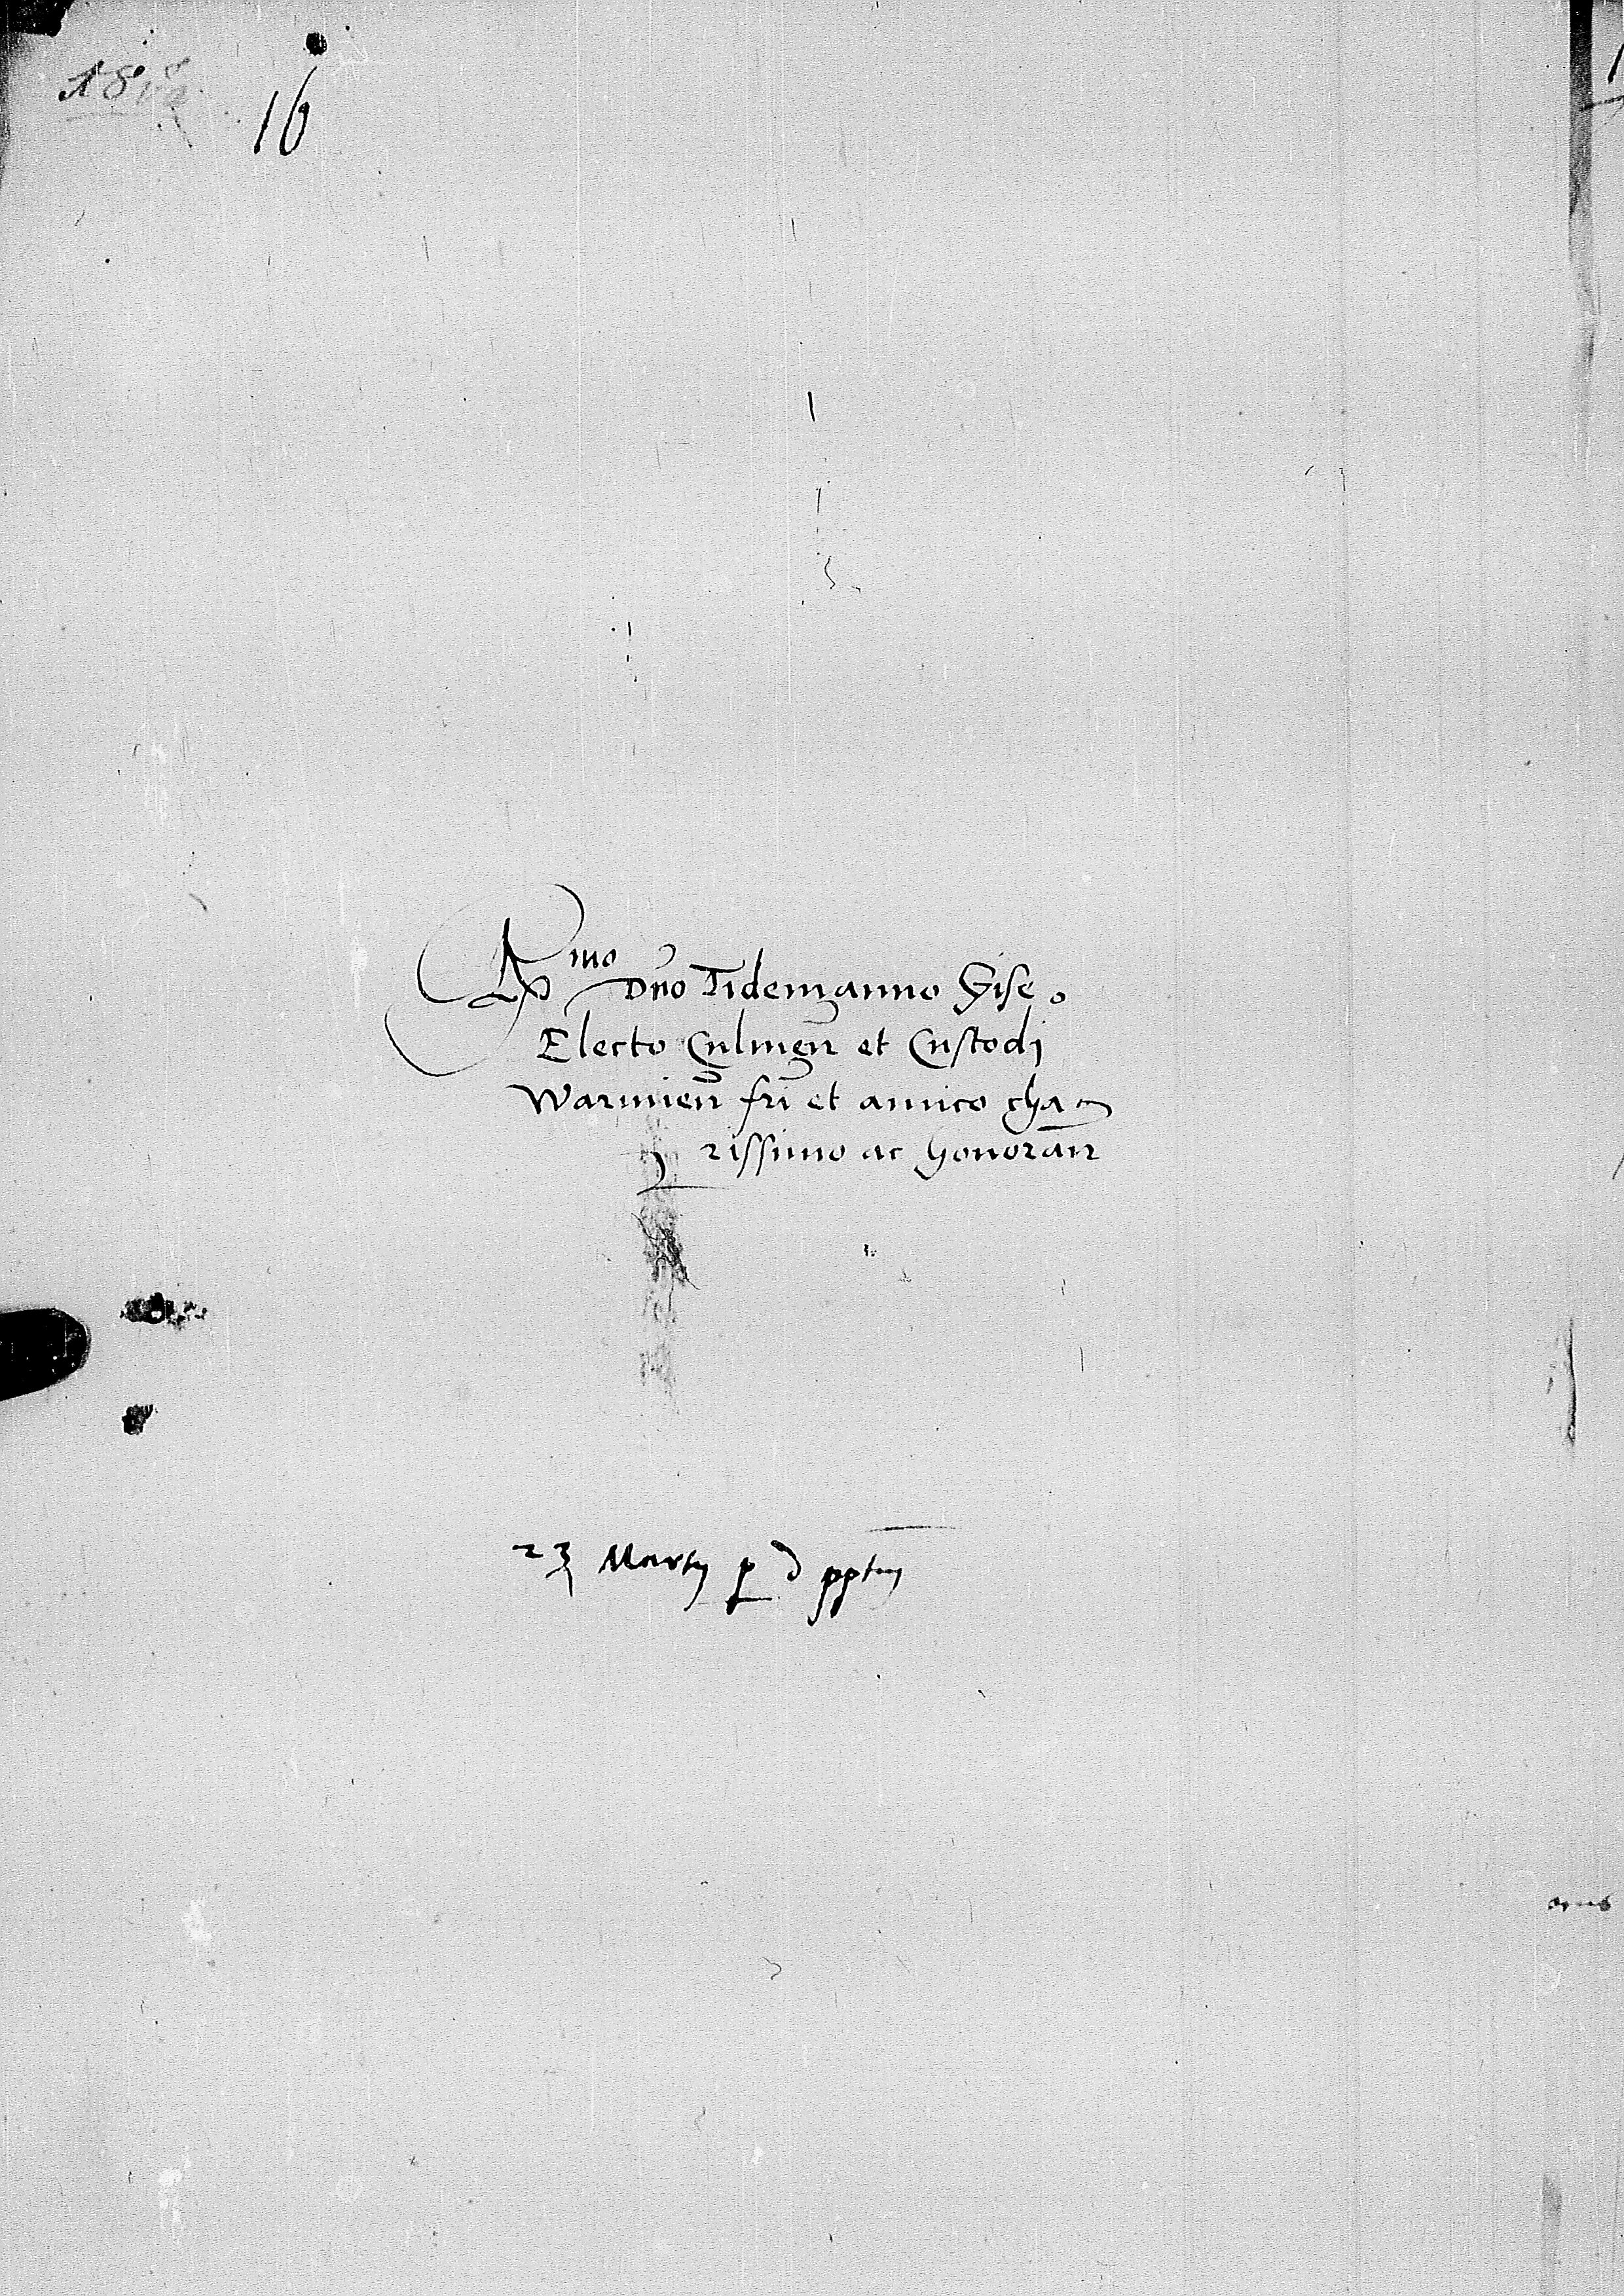 16
R^mo Dno Tidemanno Gise
Electo Culmen̄ et Custodi
Warmien̄ fri et amico cha
rissimo ac honoran̄
23 Martij ꝑ d ppt̄m